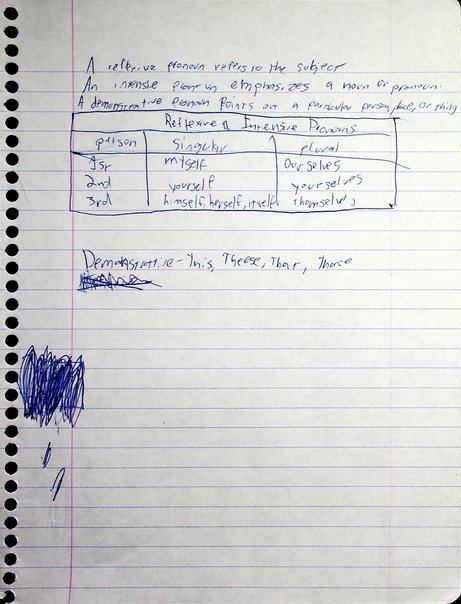 A reflexive pronoun refers to the subject
An intensive pronoun emphasizes a noun or pronoun.
A demonstrative pronoun Points out a particular person, place, or thing
Reflexive & Intensive Pronouns
person Singular plural
1st myself Ourselves
2nd yourself yourselves
3rd himself, herself, itself themselves
Demonstrative - This, Theese, That, Those